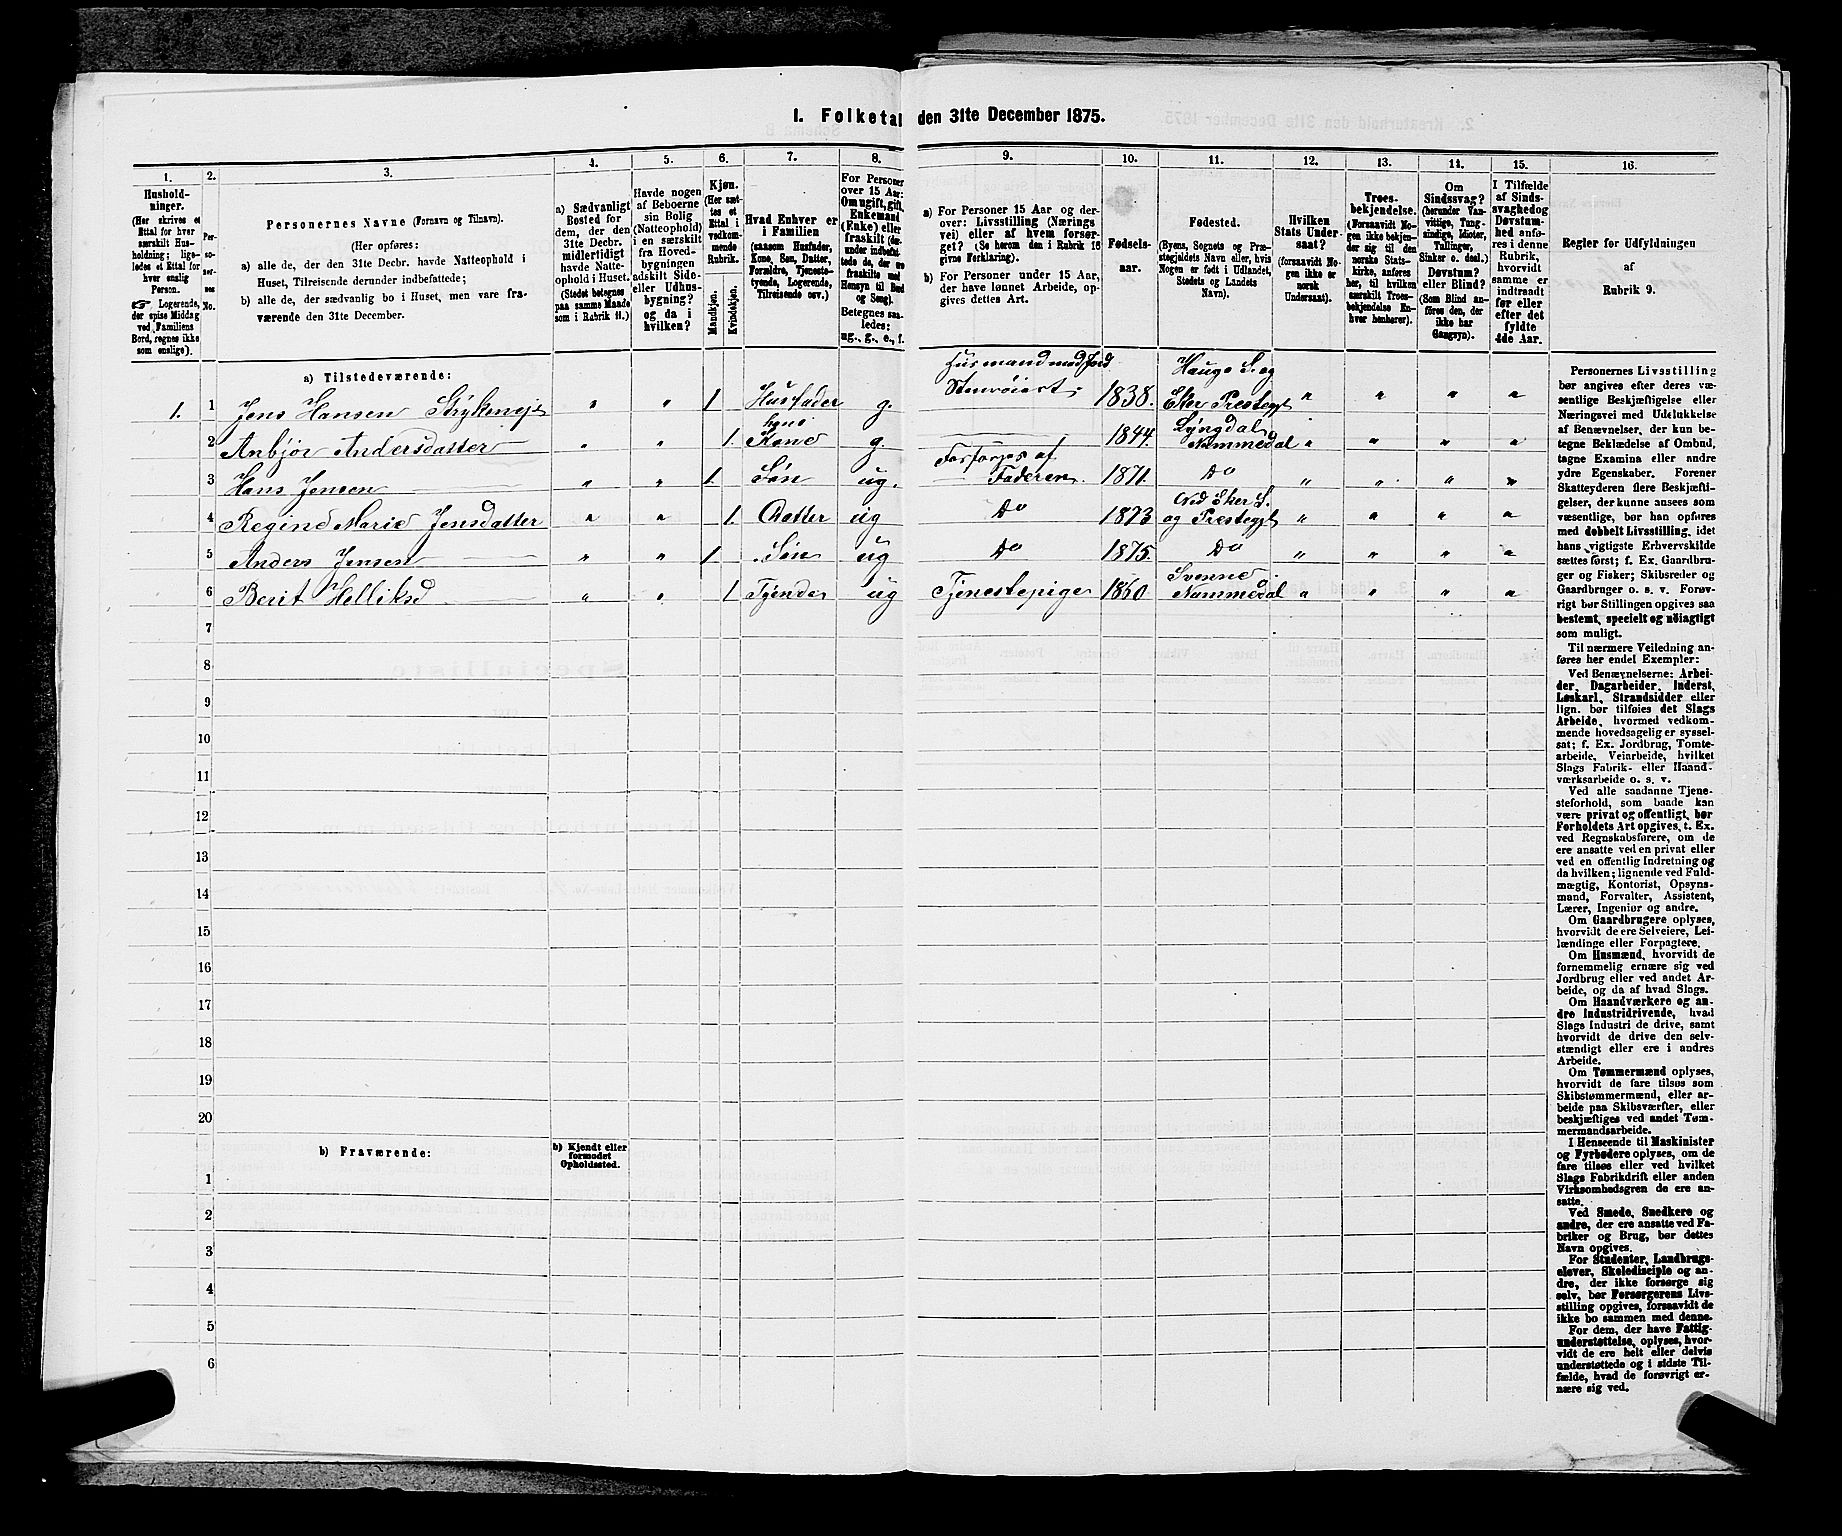 1. Folketal den 31te December 1875.
1.
Hushold-
ninger.
(Her skrives et
Ettal for hver
særskilt Hus-
holdning; lige-
ledes et Ettal for
hver enslig
Person.
☞ Logerende,
der spise Middag
ved Familiens
Bord, regnes ikke
som enslige).
2.
Per-
so-
ner-
nes
No.
3.
Personernes Navne (Fornavn og Tilnavn).
(Her opføres:
a) alle de, der den 31te Decbr. havde Natteophold i
Huset, Tilreisende derunder indbefattede;
b) alle de, der sædvanlig bo i Huset, men vare fra-
værende den 31te December.
4.
a) Sædvanligt
Bosted for
dem, der den
31te Decbr.
midlertidigt
havde Natte-
ophold i Huset.
(Stedet betegnes
paa samme Maade
som i Rubrik 11.)
5.
Havde nogen
af Beboerne
sin Bolig
(Natteophold)
i en særskilt
fra Hoved-
bygningen
adskilt Side-
eller Udhus-
bygning?
og da i
hvilken?
6.
Kjøn.
(Her sæt-
tes et
Ettal i
vedkom-
mende
Rubrik.
Mandkjøn.
Kvindekjøn.
7.
Hvad Enhver er
i Familien
(saasom Husfader,
Kone, Søn, Datter,
Forældre, Tjeneste-
tyende, Logerende,
Tilreisende osv.)
8.
For Personer
over 15 Aar:
Om ugift, gift,
Enkemand
(Enke) eller
fraskilt (der-
under indbefat-
tede de, der ere
fraskilte med
Hensyn til Bord
og Seng).
Betegnes saa-
ledes:
ug., g., e., f.
9.
a) For Personer 15 Aar og der-
over: Livsstilling (Nærings-
vei) eller af hvem forsør-
get? (Se herom den i Rubrik 16
givne Forklaring).
b) For Personer under 15 Aar,
der have lønnet Arbeide, op-
gives dettes Art.
10.
Fødsels-
aar.
11.
Fødested.
(Byens, Sognets og Præ-
stegjeldets Navn eller, hvis
Nogen er født i Udlandet,
Stedets og Landets
Navn).
12.
Hvilken
Stats Under-
saat?
(forsaavidt No-
gen ikke er
norsk
Undersaat).
13.
Troes-
bekjendelse.
(Forsaavidt No-
gen ikke bekjen-
der sig til den
norske Stats-
kirke, anføres
her, til hvilken
særskilt Troes-
bekjendelse En-
hver henhører).
14.
Om
Sindssvag?
(herunder Van-
vittige, Tung-
sindige, Idioter,
Tullinger,
Sinker o. desl.)
Døvstum?
eller Blind?
(Som Blind an-
føres den, der
ikke har
Gangsyn).
15.
I Tilfælde
af Sinds-
svaghed og
Døvstum-
hed anfø-
res i denne
Rubrik,
hvorvidt
samme er
indtraadt
før eller
efter det
fyldte
4de Aar.
16.
Regler for Udfyldningen
af
Rubrik 9.
a) Tilstedeværende:
1. 1 Jens Hansen „ „ 1 Husfader g. Husmand med Jord 1838. Hauge S. og Eker Prestegjt „ „ „ „
2 Anbjør Andersdatter „ „ 1. hans Kone g 1844. Lyngdal Nummedal „ „ „ „
3 Hans Jensen „ „ 1. Søn ug. Forsørges af Faderen. 1871. Do „ „ „ „
4 Regine Marie Jensdatter „ „ 1. Datter ug Do 1873 Ned Eker S. og Prestegjt „ „ „ „
5 Anders Jensen „ „ 1 Søn ug Do 1875. Do „ „ „ „
6 Berit Helliksd „ „ 1 Tjender ug Tjenestepige 1860 Svenne Nummedal „ „ „ „
7
8
9
10
11
12
13
14
15
16
17
18
19
20
b) Fraværende:
b) Kjendt eller
formodet
Opholdssted.
1
2
3
4
5
6
Personernes Livsstilling
bør angives efter deres væ-
sentlige Beskjæftigelse eller
Næringsvei med Udelukkelse
af Benævnelser, der kun be-
tegne Beklædelse af Ombud,
tagne Examina eller andre
ydre Egenskaber. Forener
Skatteyderen flere Beskjæfti-
gelser, der kunne ansees som
væsentlige, bør han opføres
med dobbelt Livsstilling, idet
hans vigtigste Erhvervskilde
sættes først; f. Ex. Gaardbru-
ger og Fisker; Skibsreder og
Gaardbruger o. s. v. Forøv-
rigt bør Stillingen opgives saa
bestemt, specielt og nøiagtigt
som muligt.
Til nærmere Veiledning an-
føres her endel Exempler:
Ved Benævnelserne: Arbei-
der, Dagarbeider, Inderst,
Løskarl, Strandsidder eller
lign. bør tilføies det Slags
Arbeide, hvormed vedkom-
mende hovedsagelig er syssel-
sat; f. Ex. Jordbrug, Tomte-
arbeide, Veiarbeide, hvilket
Slags Fabrik- eller Haand-
værksarbeide o. s. v.
Ved alle saadanne Tjene-
steforhold, som baade kan
være privat og offentligt, bør
Forholdets Art opgives, t. Ex.
ved Regnskabsførere, om de
ere ansatte ved en privat eller
ved en offentlig Indretning og
da hvilken; lignende ved Fuld-
mægtig, Kontorist, Opsyns-
mand, Forvalter, Assistent,
Lærer, Ingeniør og andre.
Om Gaardbrugere oplyses,
hvorvidt de ere Selveiere, Lei-
lændinge eller Forpagtere.
Om Husmænd, hvorvidt de
fornemmelig ernære sig ved
Jordbrug eller ved andet Ar-
beide, og da af hvad Slags.
Om Haandværkere og an-
dre Industridrivende, hvad
Slags Industri de drive, samt
hvorvidt de drive den selv-
stændigt eller ere i andres
Arbeide.
Om Tømmermænd oplyses,
hvorvidt de fare tilsøs som
Skibstømmermænd, eller ar-
beide paa Skibsværfter, eller
beskjæftiges ved andet Tøm-
mermandsarbeide.
I Henseende til Maskinister
og Fyrbødere oplyses, om de
fare tilsøs eller ved hvilket
Slags Fabrikdrift eller anden
Virksomhedsgren de ere an-
satte.
Ved Smede, Snedkere og
andre, der ere ansatte ved Fa-
briker og Brug, bør dettes
Navn opgives.
For Studenter, Landbrugs-
elever, Skoledisciple og an-
dre, der ikke forsørge sig
selv, bør Forsørgerens Livs-
stilling opgives, forsaavidt de
ikke bo sammen med denne.
For dem, der have Fattig-
understøttelse, oplyses, hvor-
vidt de ere helt eller delvis
understøttede og i sidste Til-
fælde, hvad de forøvrigt er-
nære sig ved.